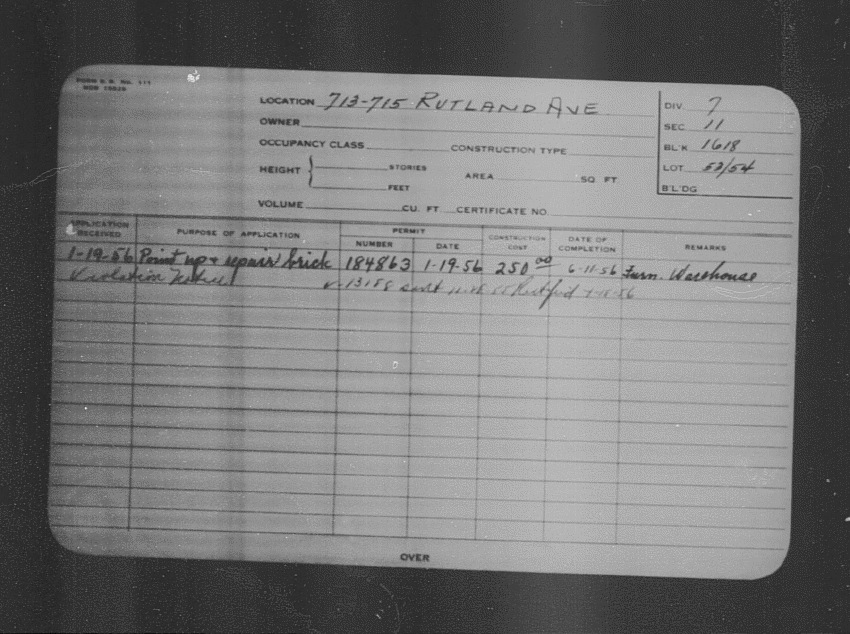 LOCATION 713-715 RUTLAND AVE
OWNER
OCCUPANCY CLASS CONSTRUCTION TYPE
HEIGHT STORIES
FEET
AREA SQ. FT.
VOLUME CU. FT. CERTIFICATE NO.
DIV. 7
SEC 11
BL'K 1618
LOT 53/54
B'L'DG
APPLICATION RECEIVED PURPOSE OF APPLICATION PERMIT NUMBER DATE CONSTRUCTION COST DATE OF COMPLETION REMARKS
1-19-56 Point up & repair brick 184863 1-19-56 250 00 6-11-56 Furn. Warehouse
Violation Notice sent Rectified
OVER